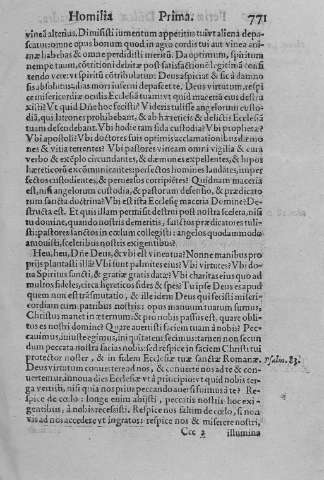 Homilia Prima. 771
vineã alterius. Dimisisti iumentum appetitus tui vt aliena depa-
scatur: omne opus bonum quod in agro cordis tui aut vinea ani-
mæ habebas & omne perdidisti meritũ. Da optimum, spiritum
nempe tuum, cõtritioni debitæ post satisfactionẽ legitimã con
tendo vere: vt spiritũ cõtribulatum Deus aspiciat & sic à damno
sis absolutus, aliàs mors inferni depascet te. Deus virtutum, respi
ce misericorditer oculis Ecclesiã tuam vt quid maceriã eius destru
xisti? Vt quid Dñe hoc fecisti? Videris tulisse angelorum custo-
diã, qui latrones prohibebant, & ab hæreticis & delictis Ecclesiã
tuam defendebant. Vbi hodie tam fida custodia? Vbi prophetæ?
Vbi apostoli? Vbi doctores suis optimis acclamationibus dæmo-
nes & vitia terrentes? Vbi pastores vineam omni vigilia & cura
verbo & exẽplo circundantes, & dæmones expellentes, & lupos
hæreticorũ excõmunicantes: perfectos homines laudãtes, imper
fectos custodientes, & peruersos corripiẽtes? Quidnam maceria
est, nisi angelorum custodia, & pastorum defensio, & prædicato
rum sancta doctrina? Vbi est ista Ecclesiæ maceria Domine? De-
structa est. Et quis illam permisit destrui post nostra scelera, nisi
tu domine, quando nostris demeritis, sanctos prædicatores tuli-
sti: pastores sanctos in cœlum collegisti: angelos quodammodo
amouisti, sceleribus nostris exigentibus?
Heu, heu, Dñe Deus, & vbi est vinea tua? Nonne manibus pro
prijs plantasti illã? Vbi sunt palmites eius? Vbi virtutes? Vbi do-
na Spiritus sancti, & gratiæ gratis datæ? Vbi charitas eius quo ad
multos fideles, circa hæreticos fides & spes? Tu ipse Deus es apud
quem non est trãsmutatio, & ille idem Deus qui fecisti miseri-
cordiam cum patribus nostris: opus manuum tuarum sumus,
Christus manet in æternum: & pro nobis passus est, quare obli-
tus es nostri domine? Quare auertisti faciem tuam à nobis? Pec-
cauimus, iniuste egimus, iniquitatem fecimus: tamen non secun
dum peccata nostra facias nobis: sed respice in faciem Christi tui
protector noster, & in fidem Ecclesiæ tuæ sanctæ Romanæ. Psalm. 83.
Deus virtutum conuertere ad nos, & conuerte nos ad te & con-
uertemur, innoua dies Ecclesiæ vt à principio: vt quid nobis ter-
ga vertisti, nisi quia nos prius peccando auersi sumus à te? Re-
spice de cœlo: longe enim abijsti, peccatis nostris hoc exi-
gentibus, à nobis recessisti. Respice nos saltim de cœlo, si non
vis ad nos accedere vt ingratos: respice nos & miserere nostri,
Ccc 2 illumina